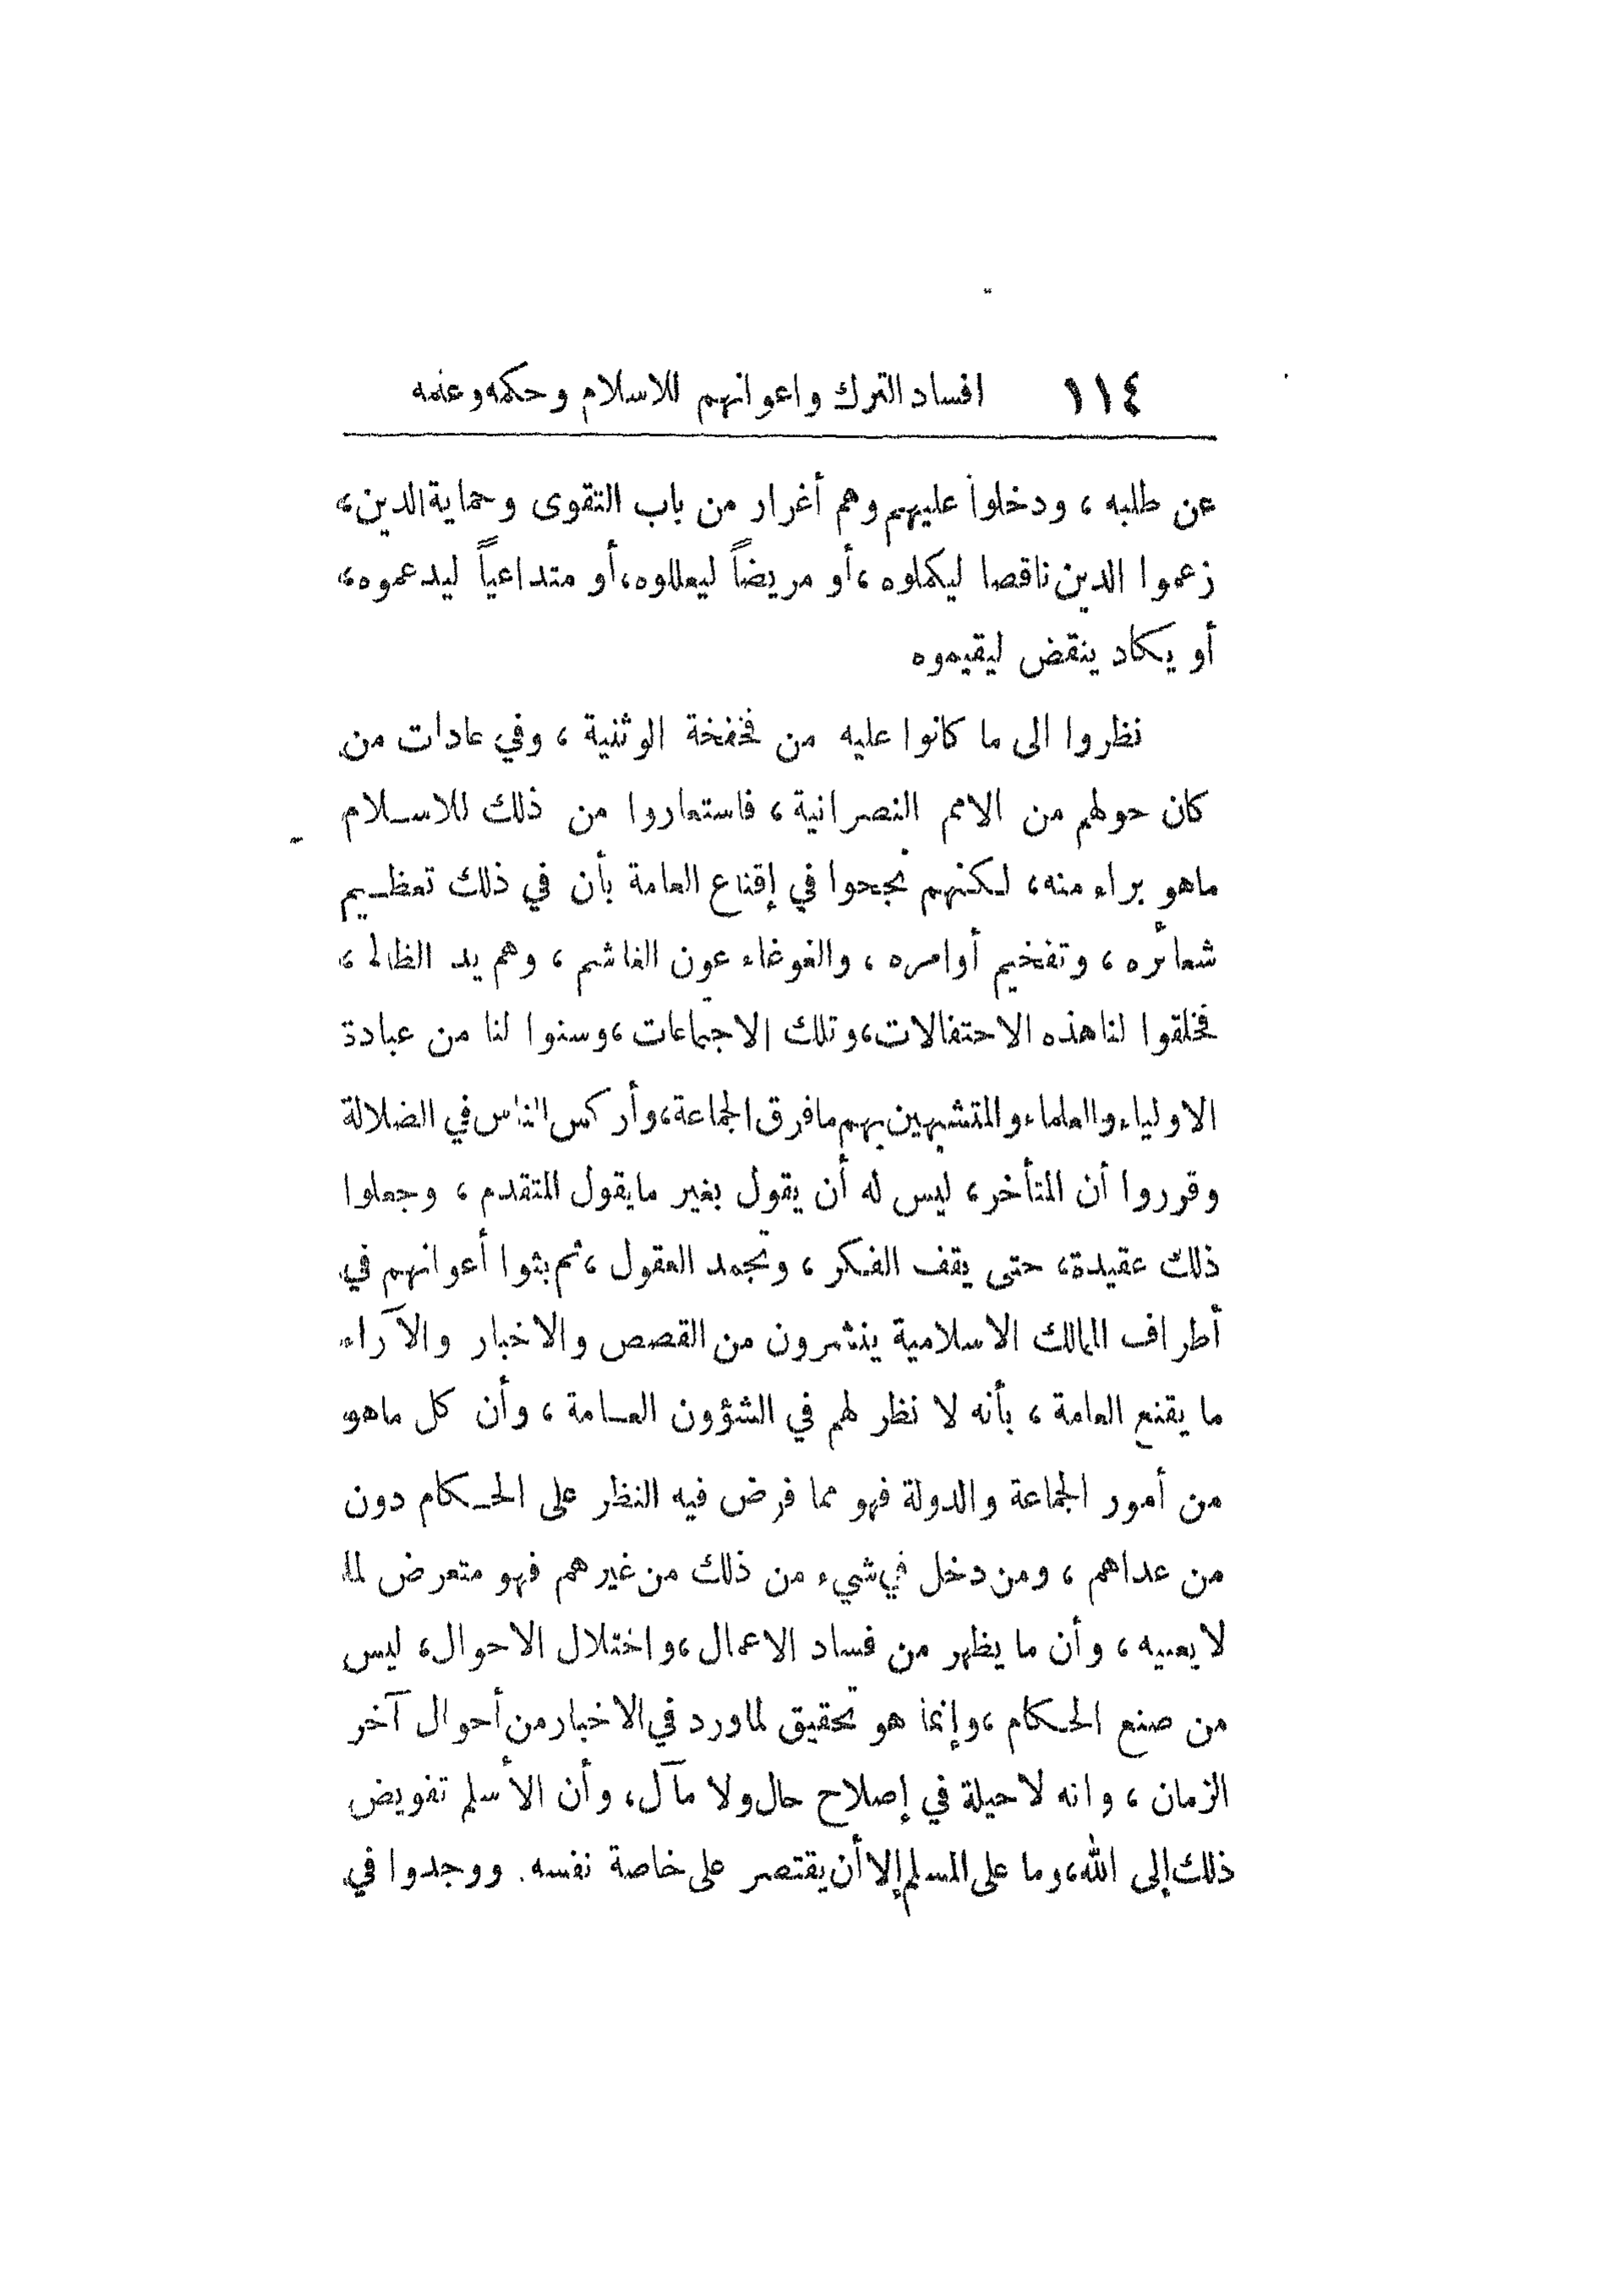 ١١٤ افساد الترك واعوانهم للاسلام وحكمه وعلمه
عن طلبه ، ودخلوا عليهم وهم أغرار من باب التقوى وحماية الدين ،
زعموا الدين ناقصا ليكملوه ، أو مريضاً ليعللوه ، أو متداعياً ليدعموه ،
أو يكاد ينقض ليقيموه
نظروا الى ما كانوا عليه من فخفخة الوثنية ، وفي عادات من
كان حولهم من الامم النصرانية ، فاستعاروا من ذلك للاسلام
ماهو براء منه ، لكنهم نجحوا في إقناع العامة بأن في ذلك تعظيم
شعائره ، وتفخيم أوامره ، والغوغاء عون الغاشم ، وهم يد الظالم ،
فخلقوا لنا هذه الاحتفالات ، وتلك الاجتماعات ، وسنوا لنا من عبادة
الاولياء والعلماء والمتشبهين بهم مافرق الجماعة ، وأركس الناس في الضلالة
وقرروا أن المتأخر ، ليس له أن يقول بغير مايقول المتقدم ، وجعلوا
ذلك عقيدة ، حتى يقف الفكر ، وتجمد العقول ، ثم بثوا أعوانهم في
أطراف الممالك الاسلامية ينشرون من القصص والاخبار والآراء
ما يقنع العامة ، بأنه لا نظر لهم في الشؤون العامة ، وأن كل ماهو
من أمور الجماعة والدولة فهو مما فرض فيه النظر على الحكام دون
من عداهم ، ومن دخل في شيء من ذلك من غيرهم فهو متعرض لما
لا يعنيه ، وأن ما يظهر من فساد الاعمال ، واختلال الاحوال ، ليس
من صنع الحكام ، وإنما هو تحقيق لما ورد في الاخبار من أحوال آخر
الزمان ، وانه لا حيلة في إصلاح حال ولا مآل ، وأن الأسلم تفويض
ذلك إلى الله ، وما على المسلم إلا أن يقتصر على خاصة نفسه . ووجدوا في